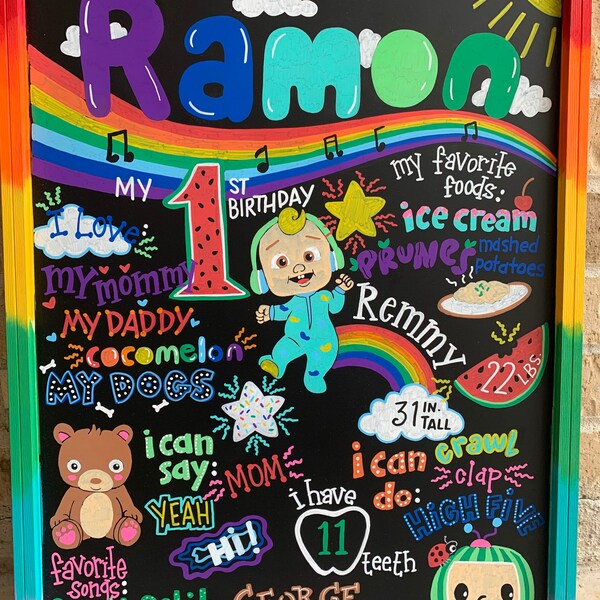 Ramon
MY 1ST BIRTHDAY
my favorite
foods:
ice cream
PRUNES
mashed
potatoes
I Love:
my mommy
MY DADDY
cocomelon
MY DOGS
Remmy
22 LBS.
31 IN.
TALL
i can
say:
MOM
YEAH
Hi!
i can
do:
crawl
clap
HIGH FIVE
i have
11
teeth
favorite
songs:
GEORGE